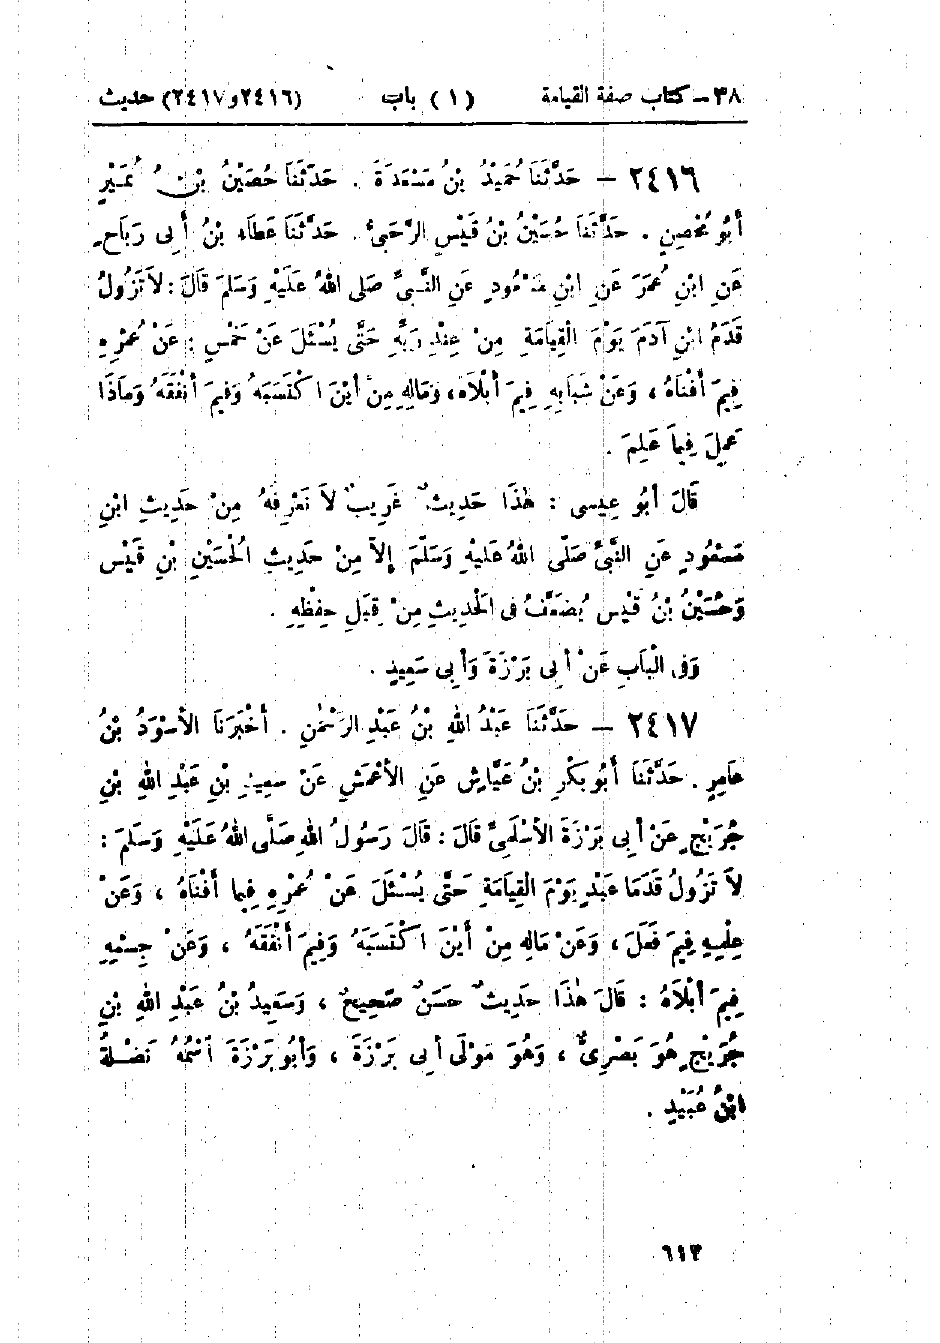 ٣٨ – كتاب صفة القيامة (١) باب (٢٤١٦ و ٢٤١٧) حديث
٢٤١٦ – حَدَّثَنَا حُمَيْدُ بْنُ مَسْعَدَةَ . حَدَّثَنَا حُصَيْنُ بْنُ نُمَيْرٍ
أَبُو مُحْصِنٍ . حَدَّثَنَا حُسَيْنُ بْنُ قَيْسٍ الرَّحَبِىُّ . حَدَّثَنَا عَطَاءُ بْنُ أَبِى رَبَاحٍ
عَنِ ابْنِ عُمَرَ عَنِ ابْنِ مَسْعُودٍ عَنِ النَّبِىِّ صَلى اللهُ عَلَيْهِ وَسَلمَ قَالَ : لاَ تَزُولُ
قَدَمُ ابْنِ آدَمَ يَوْمَ الْقِيَامَةِ مِنْ عِنْدِ رَبِّهِ حَتَّى يُسْئَلَ عَنْ خَمْسٍ : عَنْ عُمْرِهِ
فِيمَ أَفْنَاهُ ، وَعَنْ شَبَابِهِ فِيمَ أَبْلَاهُ ، وَمَالِهِ مِنْ أَيْنَ اكْتَسَبَهُ وَفِيمَ أَنْفَقَهُ وَمَاذَا
عَمِلَ فِيمَا عَلِمَ .
قَالَ أَبُو عِيسى : هٰذَا حَدِيثٌ غَرِيبٌ لاَ نَعْرِفُهُ مِنْ حَدِيثِ ابْنِ
مَسْعُودٍ عَنِ النَّبِىِّ صَلّى اللهُ عَلَيهِ وَسَلّمَ إِلاّ مِنْ حَدِيثِ الْحُسَيْنِ بْنِ قَيْسٍ
وَحُسَيْنُ بْنُ قَيْسٍ يُضَعَّفُ فى الْحَدِيثِ مِنْ قِبَلِ حِفْظِهِ .
وَفى الْبَابِ عَنْ أَبِى بَرْزَةَ وَأَبِى سَعِيدٍ .
٢٤١٧ – حَدَّثَنَا عَبْدُ اللهِ بْنُ عَبْدِ الرَّحْمٰنِ . أَخْبَرَنَا الأَسْوَدُ بْنُ
عَامِرٍ . حَدَّثَنَا أَبُو بَكْرِ بْنُ عَيَّاشٍ عَنِ الأَعْمَشِ عَنْ سَعِيدِ بْنِ عَبْدِ اللهِ بْنِ
جُرَيْجٍ عَنْ أَبِى بَرْزَةَ الأَسْلَمِىِّ قَالَ : قَالَ رَسُولُ اللهِ صَلَّى اللهُ عَلَيْهِ وَسَلمَ :
لاَ تَزُولُ قَدَمَا عَبْدٍ يَوْمَ الْقِيَامَةِ حَتَّى يُسْئَلَ عَنْ عُمْرِهِ فِيما أَفْنَاهُ ، وَعَنْ
عِلْمِهِ فِيمَ فَعَلَ ، وَعَنْ مَالِهِ مِنْ أَيْنَ اكْتَسَبَهُ وَفِيمَ أَنْفَقَهُ ، وَعَنْ جِسْمِهِ
فِيمَ أَبْلَاهُ : قَالَ هٰذَا حَدِيثٌ حَسَنٌ صَحِيحٌ ، وَسَعِيدُ بْنُ عَبْدِ اللهِ بْنِ
جُرَيْجٍ هُوَ بَصْرِىٌّ ، وَهُوَ مَوْلَى أَبِى بَرْزَةَ ، وَأَبُو بَرْزَةَ اسْمُهُ نَضْلَةُ
ابْنُ عُبَيْدٍ .
٦١٢